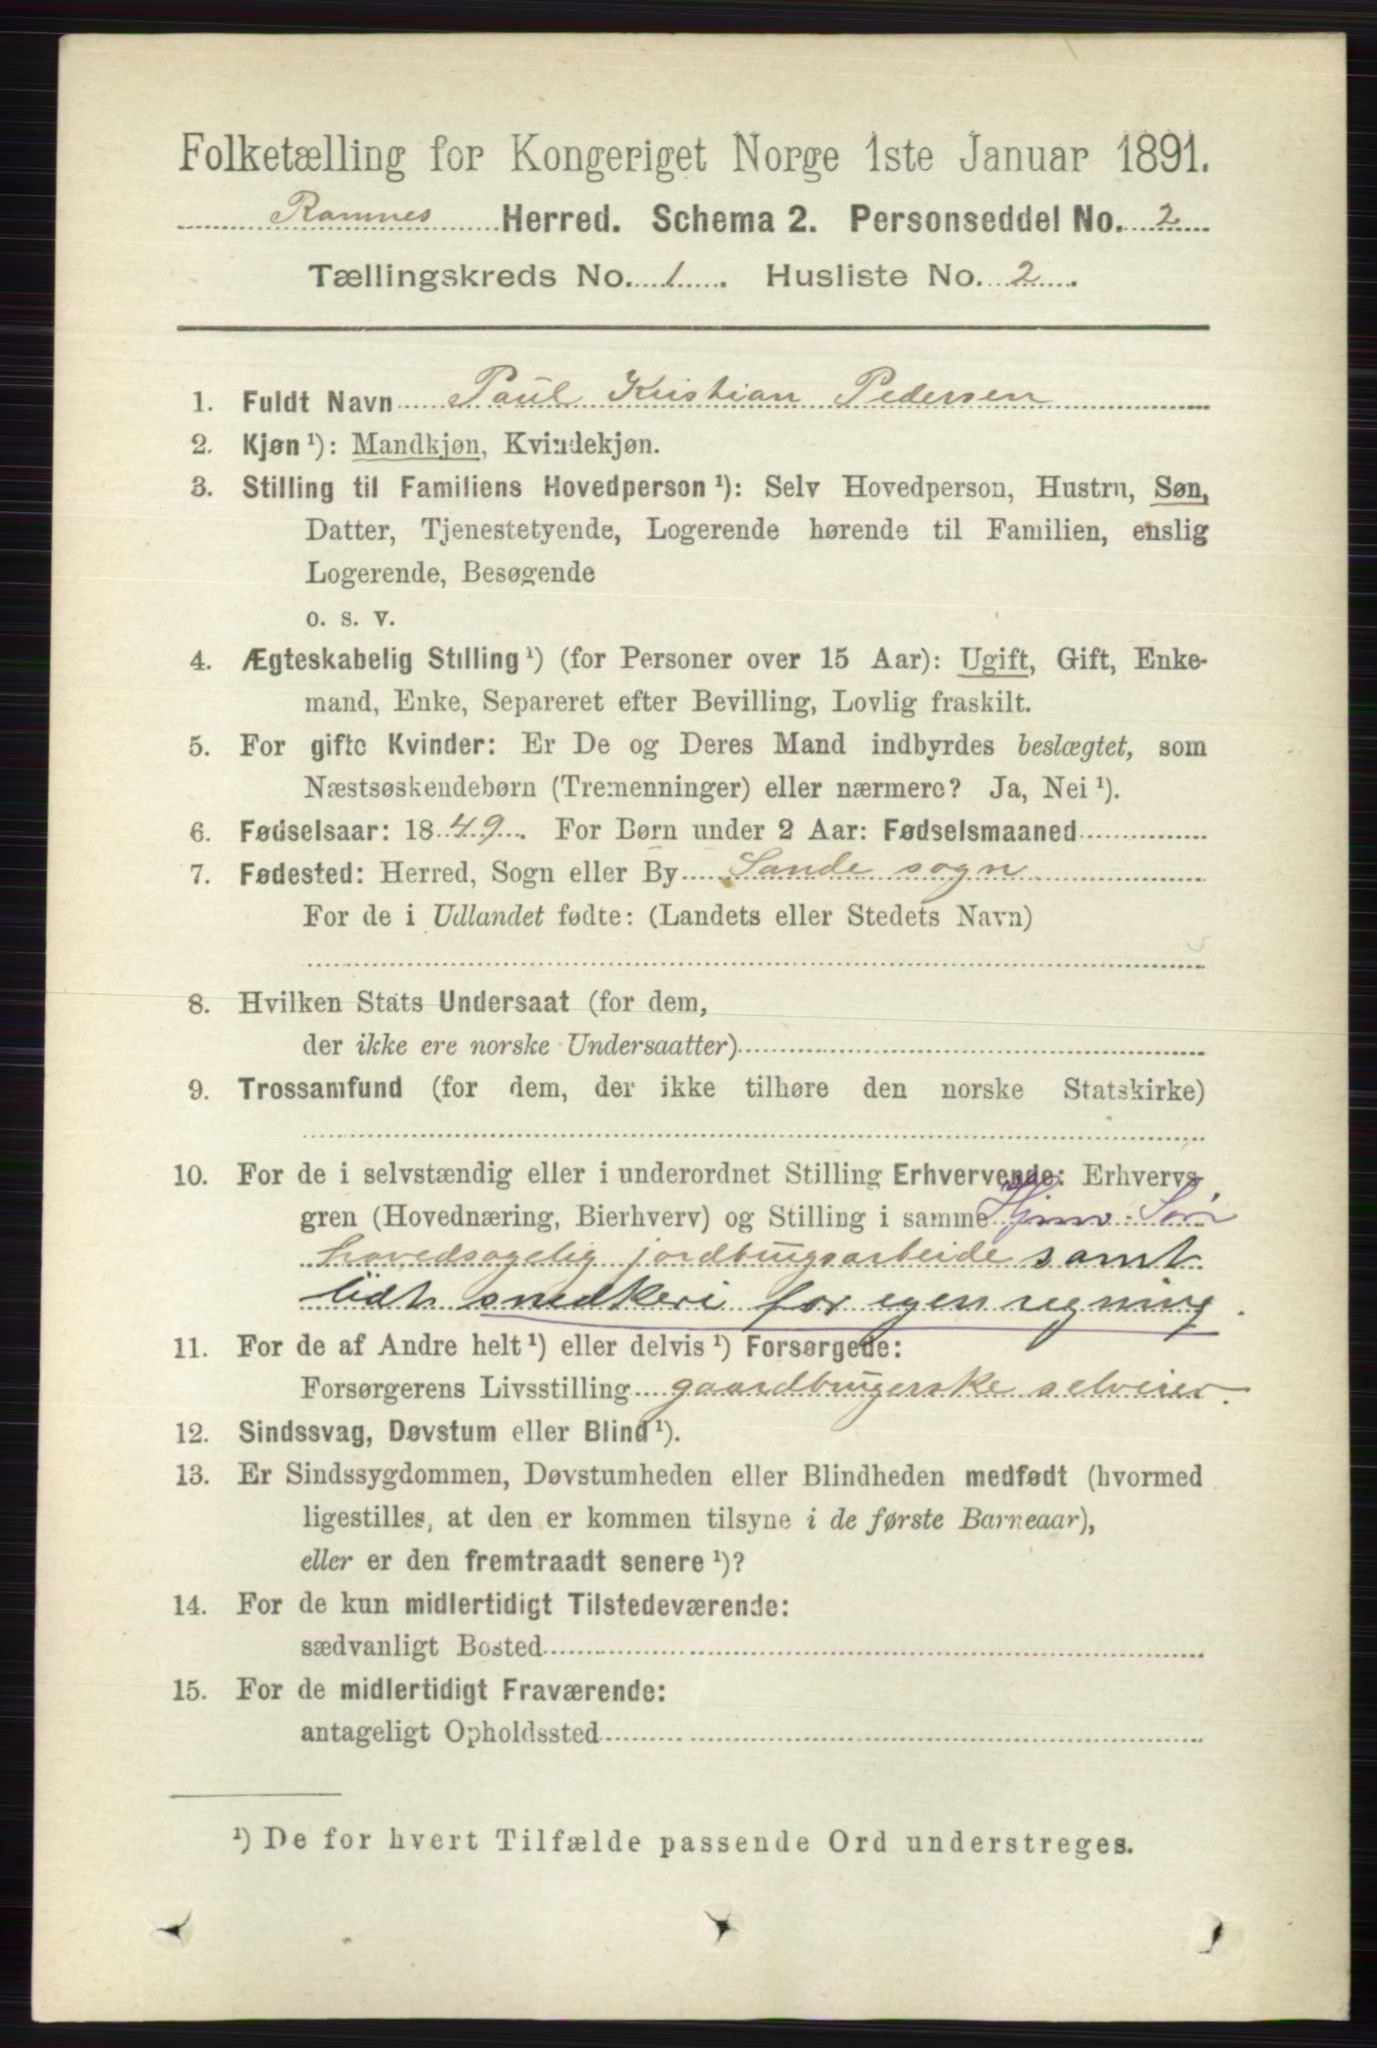 Folketælling for Kongeriget Norge 1ste Januar 1891.
Ramnes Herred. Schema 2. Personseddel No. 2
Tællingskreds No. 1. Husliste No. 2.
1. Fuldt Navn Paul Kristian Pedersen
2. Kjøn ¹): Mandkjøn, Kvindekjøn.
3. Stilling til Familiens Hovedperson ¹): Selv Hovedperson, Hustru, Søn,
Datter, Tjenestetyende, Logerende hørende til Familien, enslig
Logerende, Besøgende
o. s. v.
4. Ægteskabelig Stilling ¹) (for Personer over 15 Aar): Ugift, Gift, Enke-
mand, Enke, Separeret efter Bevilling, Lovlig fraskilt.
5. For gifte Kvinder: Er De og Deres Mand indbyrdes beslægtet, som
Næstsøskendebørn (Tremenninger) eller nærmere? Ja, Nei ¹).
6. Fødselsaar: 1849. For Børn under 2 Aar: Fødselsmaaned
7. Fødested: Herred, Sogn eller By Sande sogn
For de i Udlandet fødte: (Landets eller Stedets Navn)
8. Hvilken Stats Undersaat (for dem,
der ikke ere norske Undersaatter)
9. Trossamfund (for dem, der ikke tilhøre den norske Statskirke)
10. For de i selvstændig eller i underordnet Stilling Erhvervende: Erhvervs-
gren (Hovednæring, Bierhverv) og Stilling i samme Hjmv. Søn
hovedsagelig jordbrugsarbeide samt
lidt snedkeri for egen regning.
11. For de af Andre helt ¹) eller delvis ¹) Forsørgede:
Forsørgerens Livsstilling gaardbrugerske selveier.
12. Sindssvag, Døvstum eller Blind ¹).
13. Er Sindssygdommen, Døvstumheden eller Blindheden medfødt (hvormed
ligestilles, at den er kommen tilsyne i de første Barneaar),
eller er den fremtraadt senere ¹)?
14. For de kun midlertidigt Tilstedeværende:
sædvanligt Bosted
15. For de midlertidigt Fraværende:
antageligt Opholdssted
¹) De for hvert Tilfælde passende Ord understreges.